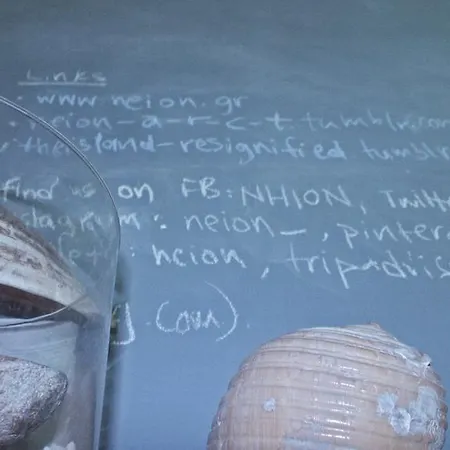 Links
· www.neion.gr
eion-a-r-c-t.tumblr.com
theisland-resignified tumblr
find us on FB: NHION, Twitt
stagram: neion_, pinter
: neion, tripadvis
.com)